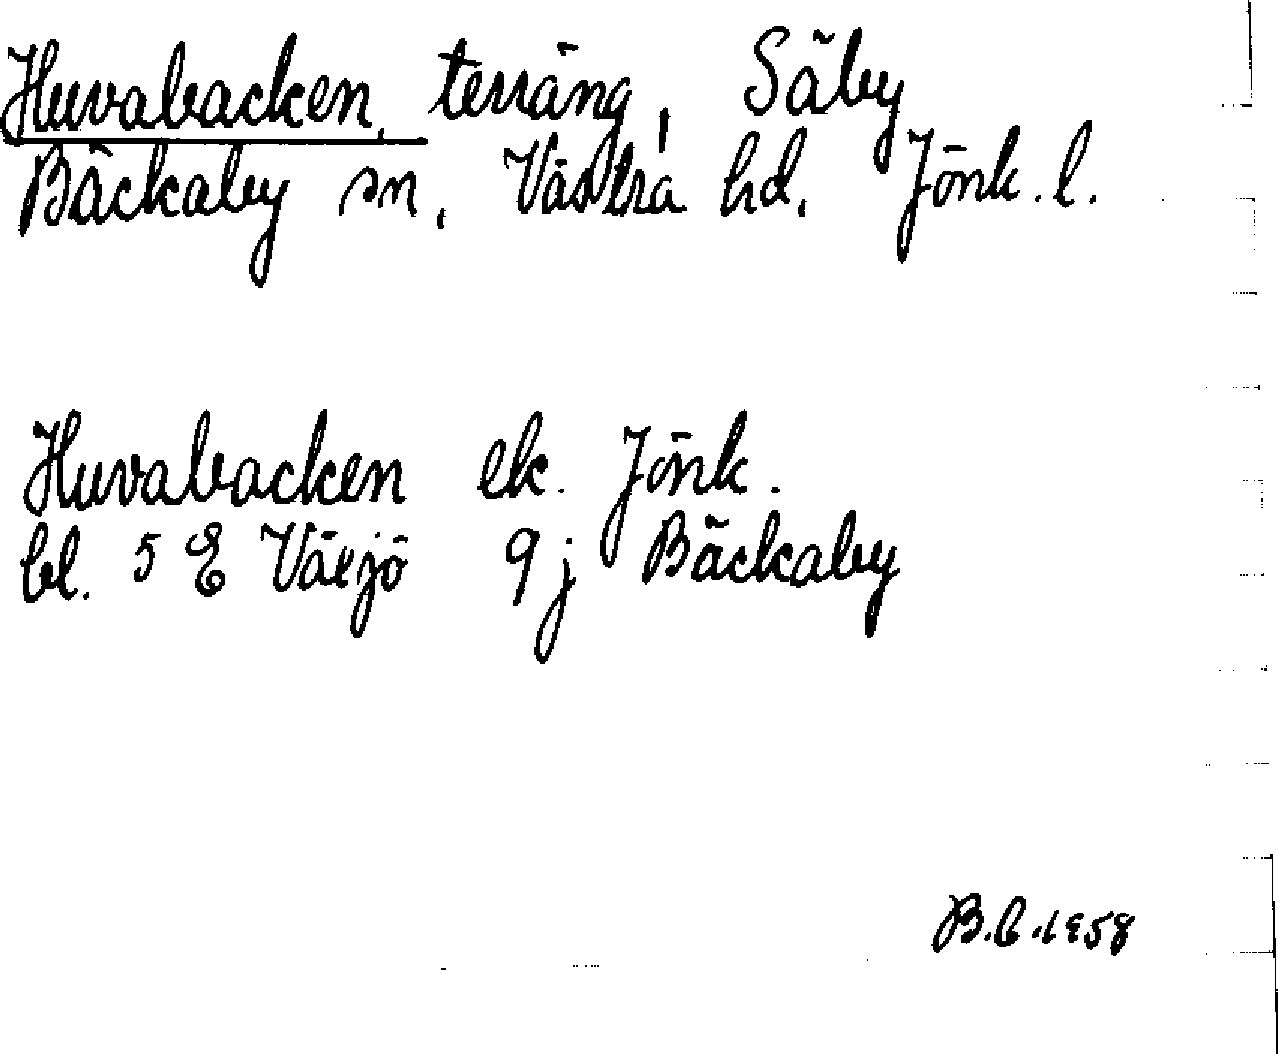 Huvabacken, terräng, Säby
Bäckaby sn, Västra hd. Jönk. l.
Huvabacken ek. Jönk.
bl. 5 E Växjö 9j Bäckaby
B.E. 1958